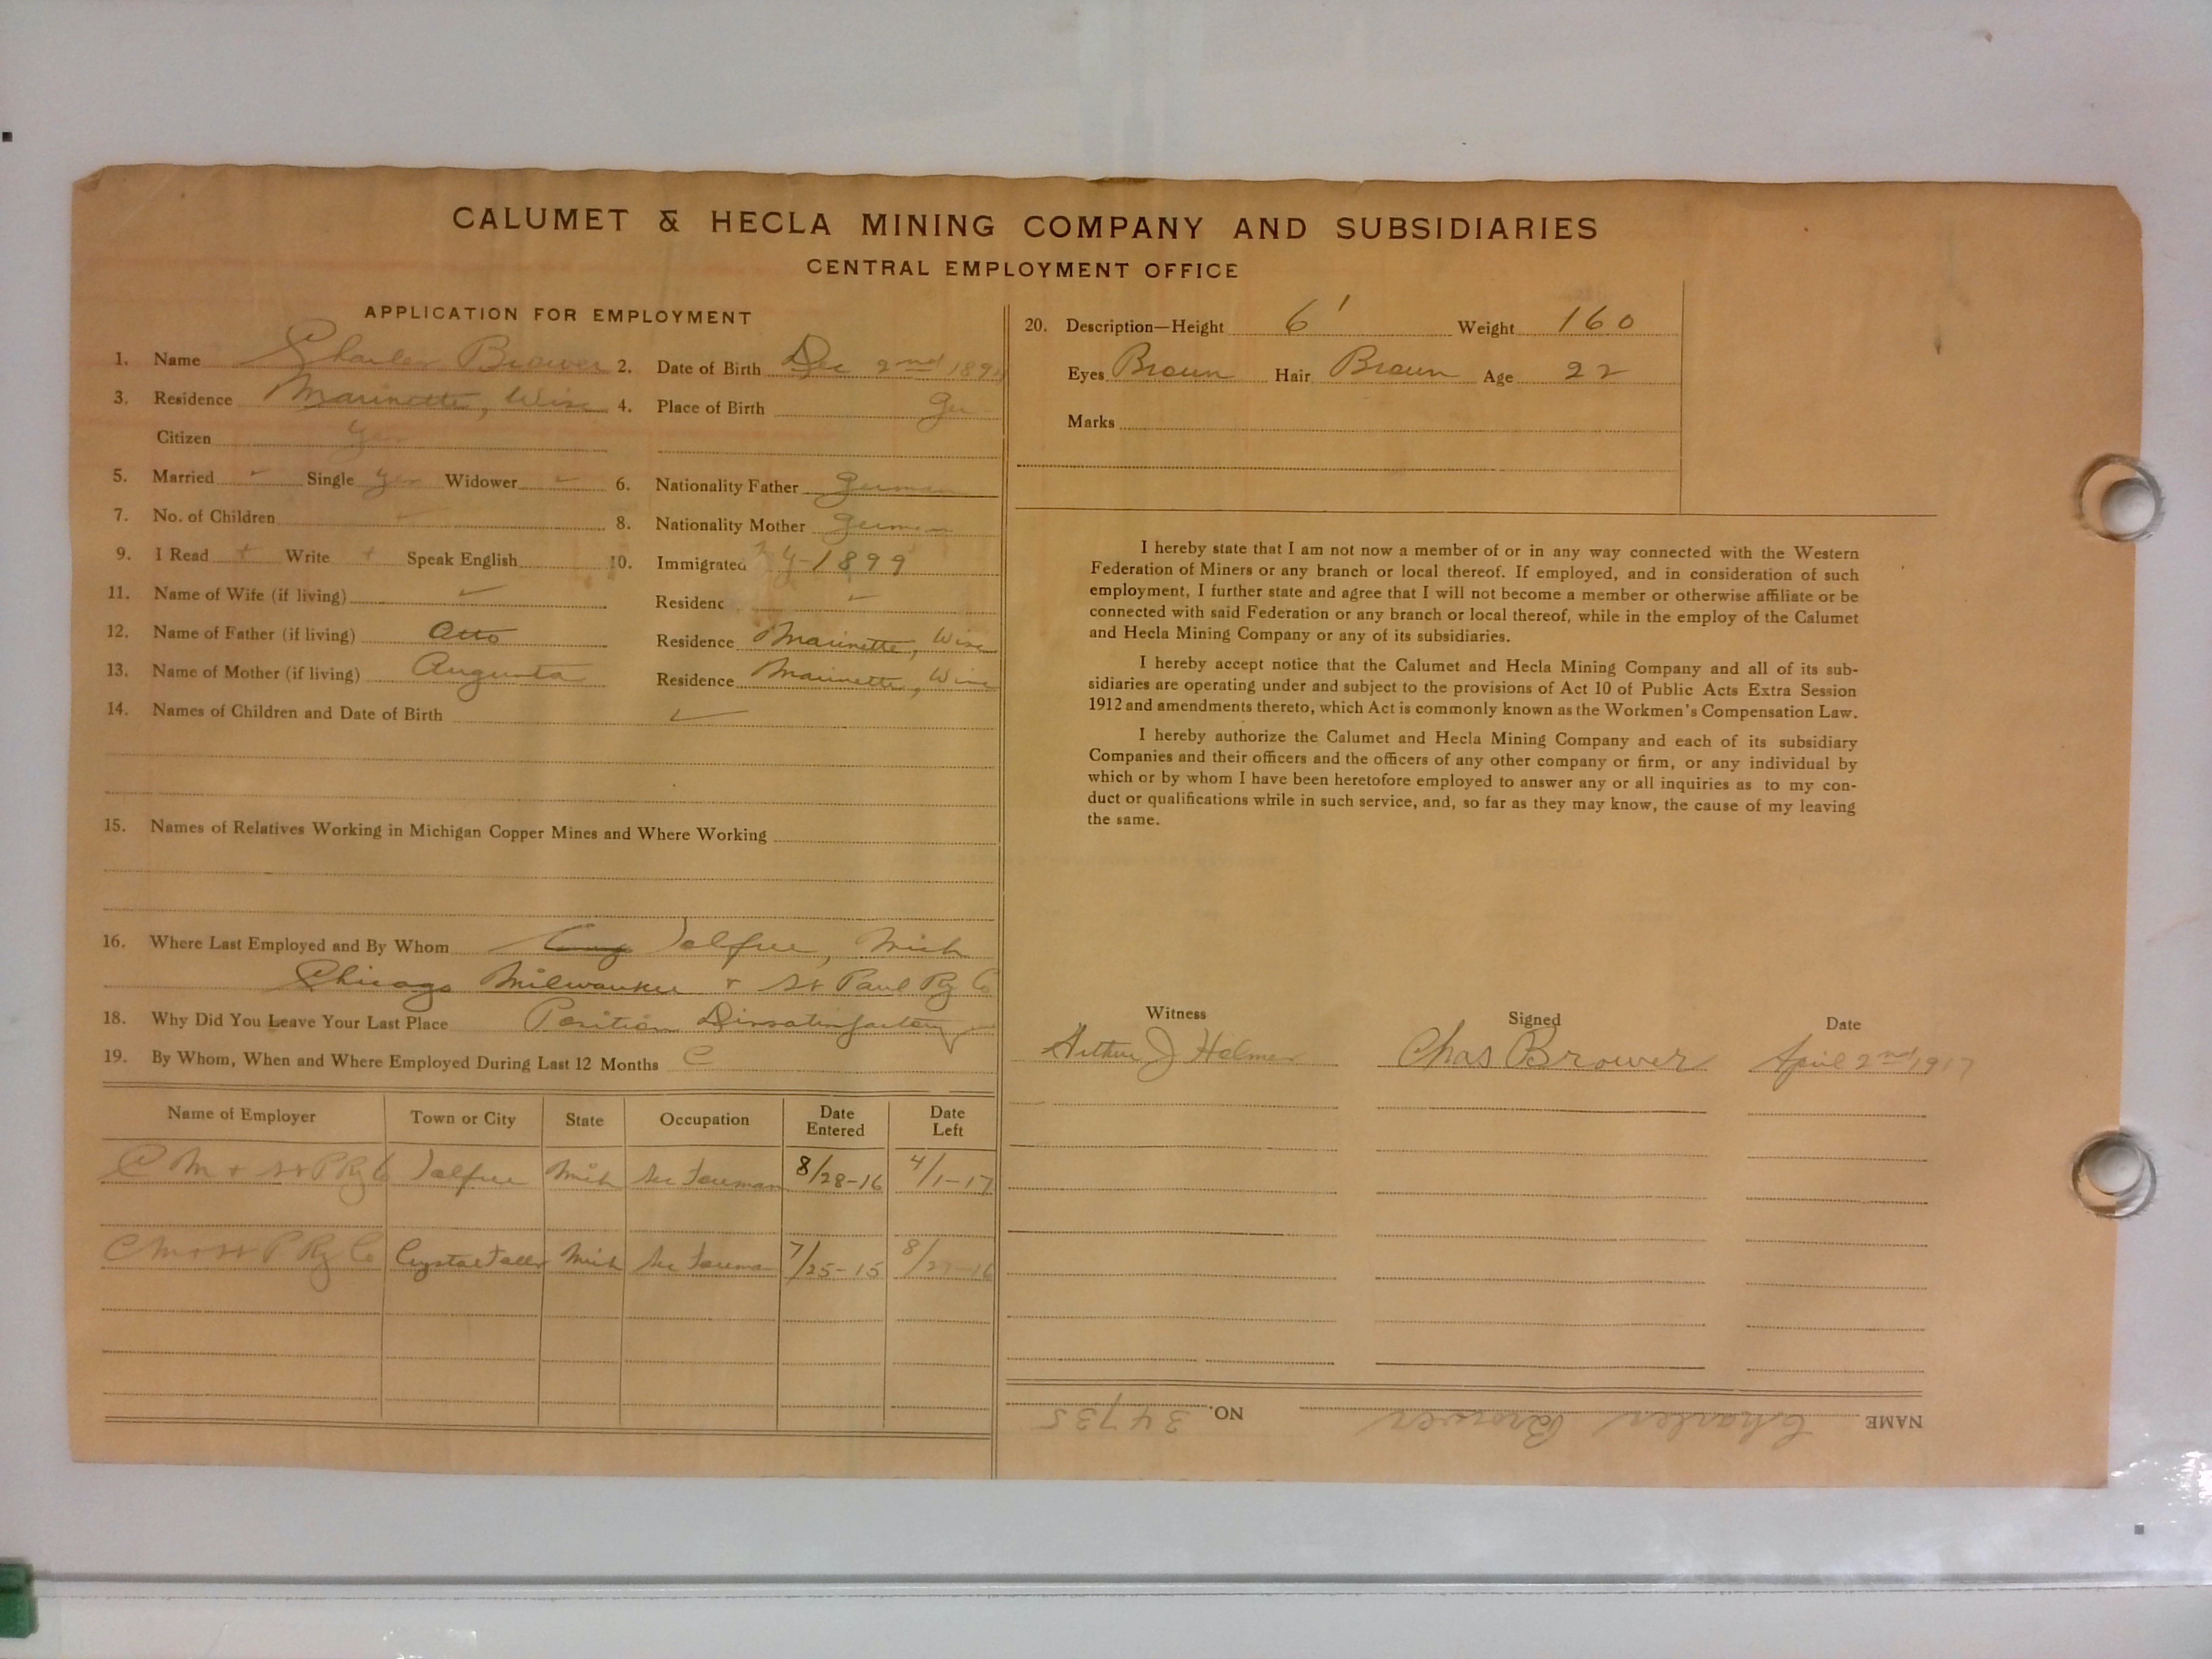 CALUMET & HECLA MINING COMPANY AND SUBSIDIARIES
CENTRAL EMPLOYMENT OFFICE
APPLICATION FOR EMPLOYMENT
1. Name Charles Brower 2. Date of Birth Dec 2nd 1894
3. Residence Marinette, Wisc 4. Place of Birth Ger
Citizen Yes
5. Married ✓ Single Yes Widower ✓ 6. Nationality Father German
7. No. of Children ✓ 8. Nationality Mother German
9. I Read + Write + Speak English 10. Immigrated 1899
11. Name of Wife (if living) ✓ Residenc ✓
12. Name of Father (if living) Otto Residence Marinette, Wisc
13. Name of Mother (if living) Augusta Residence Marinette, Wisc
14. Names of Children and Date of Birth ✓
15. Names of Relatives Working in Michigan Copper Mines and Where Working
16. Where Last Employed and By Whom Mich
Chicago Milwaukee + St Paul Ry Co
18. Why Did You Leave Your Last Place Position Dissatisfactory
19. By Whom, When and Where Employed During Last 12 Months
Name of Employer Town or City State Occupation Date Entered Date Left
C M + St P Ry Co Mich Sec Foreman 8/28-16 4/1-17
C M + St P Ry Co Crystal Falls Mich Sec Foreman 7/25-15 8/27-16
20. Description—Height 6' Weight 160
Eyes Brown Hair Brown Age 22
Marks
I hereby state that I am not now a member of or in any way connected with the Western
Federation of Miners or any branch or local thereof. If employed, and in consideration of such
employment, I further state and agree that I will not become a member or otherwise affiliate or be
connected with said Federation or any branch or local thereof, while in the employ of the Calumet
and Hecla Mining Company or any of its subsidiaries.
I hereby accept notice that the Calumet and Hecla Mining Company and all of its sub-
sidiaries are operating under and subject to the provisions of Act 10 of Public Acts Extra Session
1912 and amendments thereto, which Act is commonly known as the Workmen's Compensation Law.
I hereby authorize the Calumet and Hecla Mining Company and each of its subsidiary
Companies and their officers and the officers of any other company or firm, or any individual by
which or by whom I have been heretofore employed to answer any or all inquiries as to my con-
duct or qualifications while in such service, and, so far as they may know, the cause of my leaving
the same.
Witness Signed Date
Arthur J Holmes Chas Brower April 2nd 1917
NAME Charles Brower NO. 34735